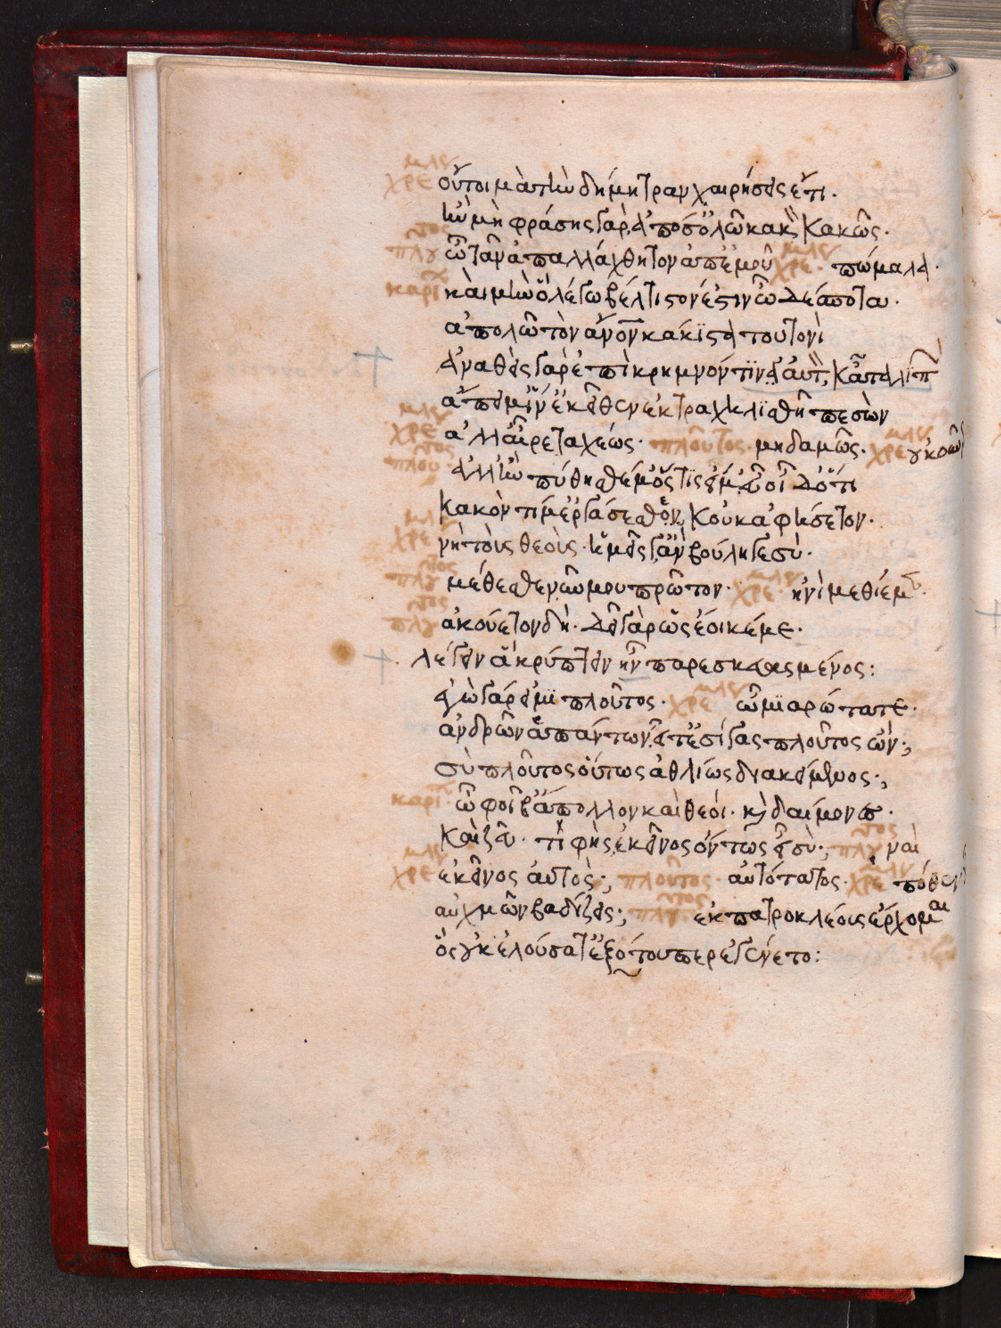 χρε μυλ οὔτοι μὰ τὴν δήμητραν χαιρήσεις ἔτι.
εἰ μὴ φράσεις γὰρ ἀπό σ' ὀλῶ κακὸν κακῶς.
πλου τος ὦ τᾶν ἀπαλλάχθητον ἀπ' ἐμοῦ χρε πώμαλα.
καρί καὶ μὴν ὃ λέγω βέλτιστόν ἐστιν ὦ δέσποτα.
ἀπολῶ τὸν ἄνον κάκιστα τουτονὶ
ἀναθεὶς γὰρ ἐπὶ κρημνόν τιν' αὐτὸν καταλιπὼν
ἄπειμ' ἵν' ἐκεῖθεν ἐκτραχηλισθῇ πεσὼν
χρε ἀλλ' αἶρε ταχέως. πλοῦτος μηδαμῶς. χρε οὔκουν
πλου τος ἀλλ' ἢν πύθησθέ μ' ὅστις εἴμ' εὖ οἶδ' ὅτι
κακόν τί μ' ἐργάσεσθον κοὐκ ἀφήσετον.
χρε νὴ τοὺς θεοὺς ἡμεῖς γ' ἂν βούλῃ γε σύ.
πλου τος μέθεσθε νῦν μου πρῶτον. χρε ἡνὶ μεθίεμεν.
πλου τος ἀκούετον δή. δεῖ γὰρ ὡς ἔοικέ με.
λέγειν ἃ κρύπτειν ἦν παρεσκευασμένος:
ἐγὼ γάρ εἰμι πλοῦτος. χρε ὦ μιαρώτατε.
ἀνδρῶν ἁπάντων εἶτ' ἐσίγας πλοῦτος ὤν;
σὺ πλοῦτος οὕτως ἀθλίως διακείμενος;
καρί ὦ φοῖβ' ἄπολλον καὶ θεοί. καὶ δαίμονες.
καὶ ζεῦ. τί φῂς ἐκεῖνος ὄντως εἶ σύ; πλου τος ναί
χρε ἐκεῖνος αὐτός; πλοῦτος αὐτότατος. χρε πόθεν
αὐχμῶν βαδίζεις; πλου τος ἐκ πατροκλέους ἔρχομαι
ὃς οὐκ ἐλούσατ' ἐξ ὅτουπερ ἐγένετο: